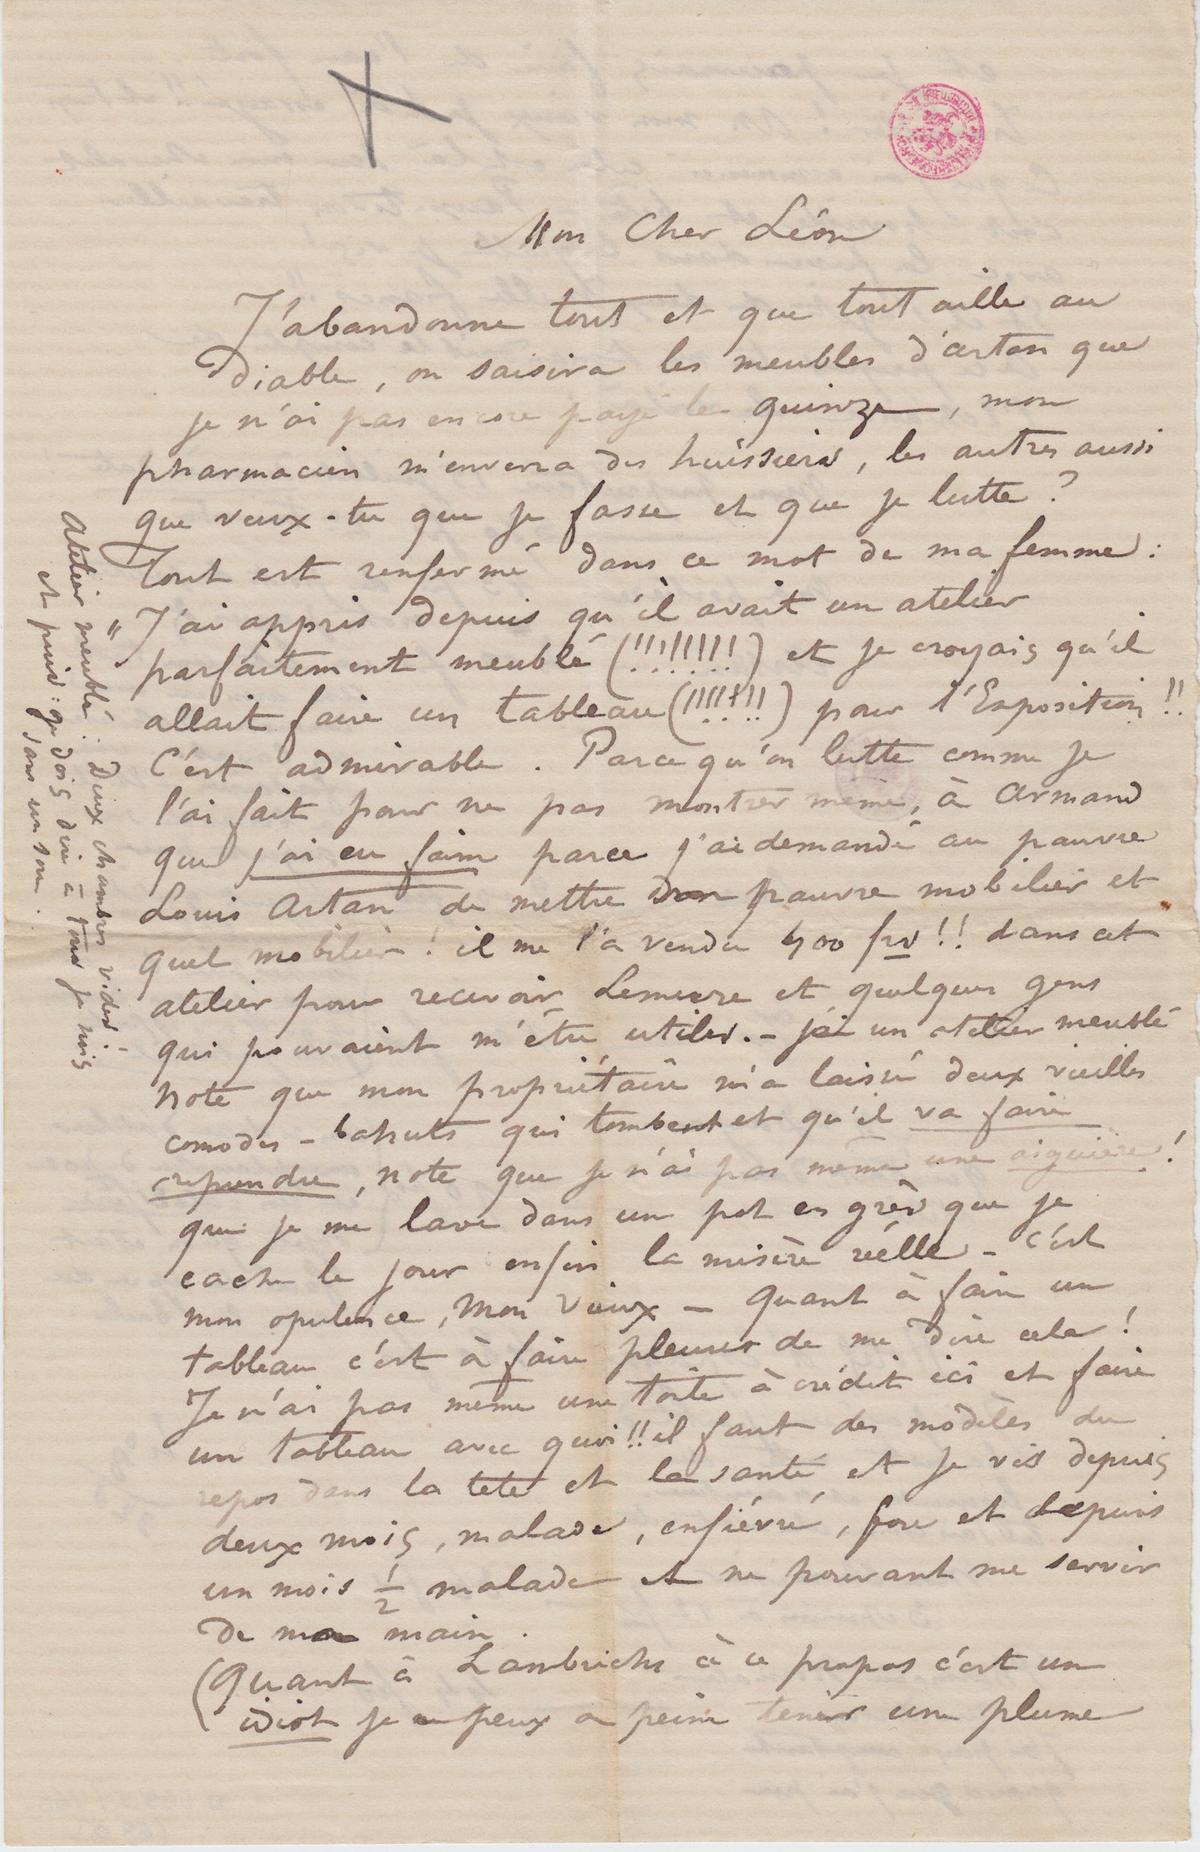 Mon Cher Léon
J'abandonne tout et que tout aille au
Diable, on saisira les meubles d'artan que
je n'ai pas encore payé le quinze, mon
pharmacien m'enverra des huissiers, les autres aussi
que veux-tu que je fasse et que je lutte ?
Tout est renfermé dans ce mot de ma femme :
"J'ai appris depuis qu'il avait un atelier
parfaitement meublé (!!!!!!!!) et je croyais qu'il
allait faire un tableau (!!!!!!!) pour l'Exposition !!
C'est admirable. Parce qu'on lutte comme je
l'ai fait pour ne pas montrer même, à Armand
que j'ai eu faim parce j'ai demandé au pauvre
Louis Artan de mettre son pauvre mobilier et
quel mobilier ! il me l'a vendu 400 frs !! dans cet
atelier pour recevoir Lemerre et quelques gens
qui pouvaient m'être utiles. - j'ai un atelier meublé
note que mon propriétaire m'a laissé deux vieilles
comodes - bahuts qui tombent et qu'il va faire
reprendre, note que je n'ai pas même une aiguière !
que je me lave dans un pot en grès que je
cache le jour enfin la misère réelle - c'est
mon opulence, Mon Vieux - Quant à faire un
tableau c'est à faire pleurer de me dire cela !
Je n'ai pas même une toile à crédit ici et faire
un tableau avec quoi !! il faut des modèles du
repos dans la tete et la santé et je vis depuis
deux mois, malade, enfiévré, fou et depuis
un mois 1/2 malade et ne pouvant me servir
de ma main.
(Quant à Lambrichs à ce propos c'est un
idiot je peux a peine tenir une plume
Atelier meublé : Deux chambres vides -
et puis : je dois dire à tous je suis
sans un sou.